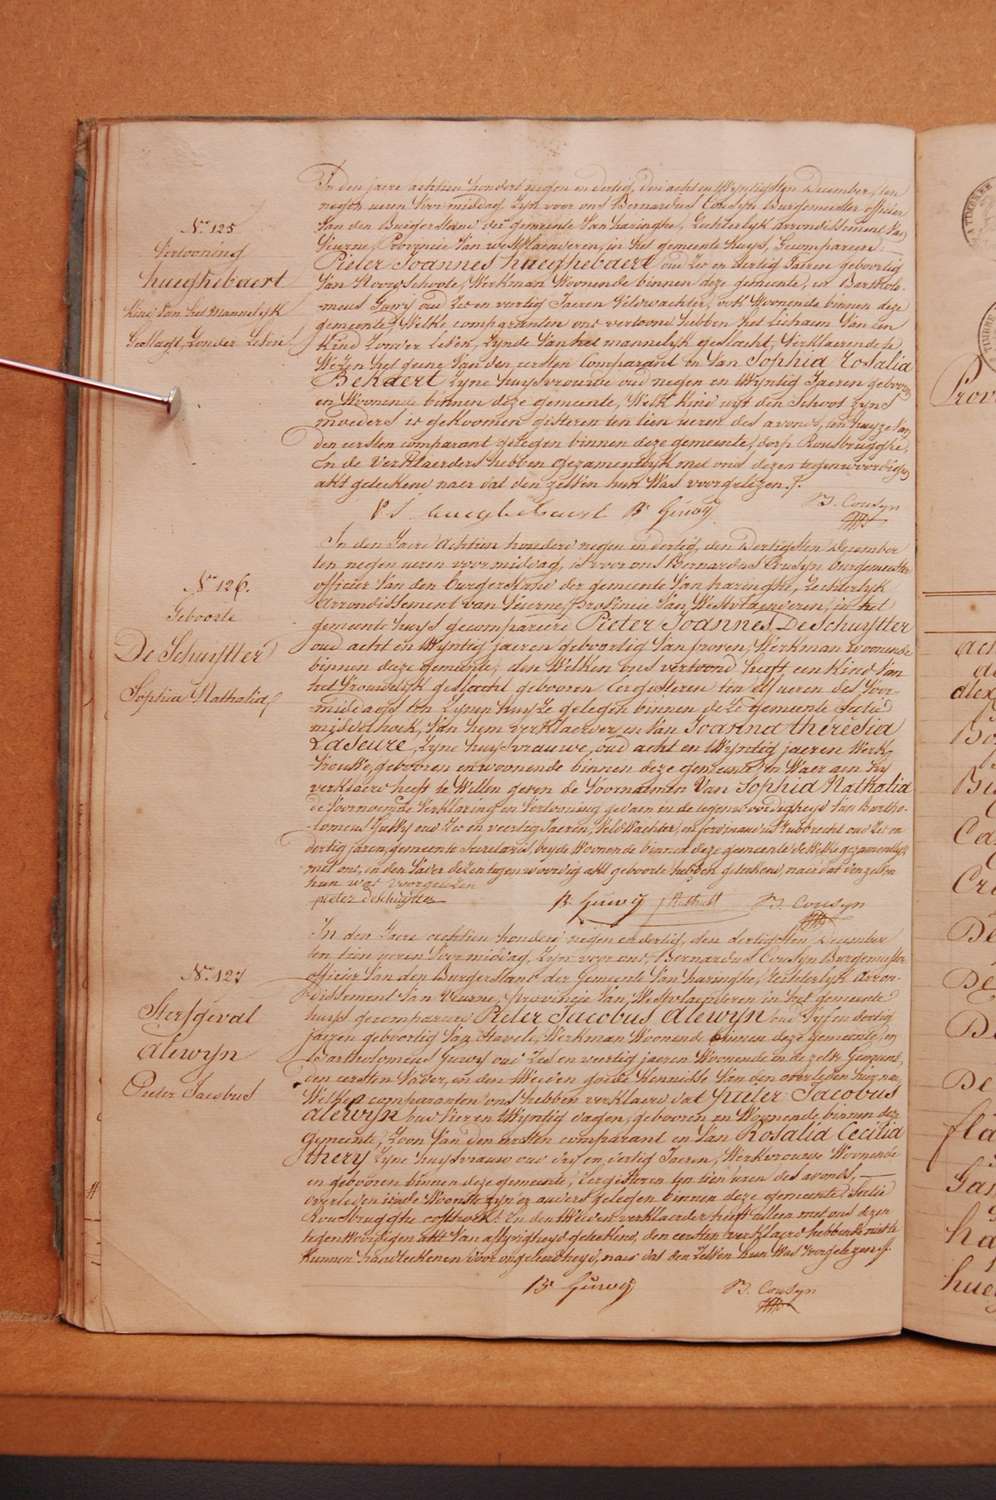 N.º 125
Vertooning
hueghebaert
kind van het mannelijk
Geslagt, zonder Leven
In den jaere achtien hondert negen en dertig, den acht en twyntigsten December, ten
negen ueren voor middag, zyn voor ons Bernardus Cousyn Burgemeester officier
van den Burgerstand der gemeente van haringhe, Rechterlyk arrondissement van
Veurne, Provincie van westvlaenderen, in het gemeente huys, Gecompareert
Pieter Joannes hueghebaert oud zes en dertig Jaeren geboortig
van Hoogschoote, Werkman Woonende binnen deze gemeente, en Bartholo-
meus Guwy oud zes en veertig Jaeren Veldwachter, ook Woonende binnen deze
gemeente, Welke comparanten ons vertoond hebben het lichaem van een
kind zonder leven, zynde van het mannelyk geslacht, verklaerende te
Wezen het gene van den eersten Comparant en van Sophia Rosalia
Behaert zyne huysvrouwe oud negen en twyntig Jaeren geboren
en Woonende binnen deze gemeente, Welk kind uyt den schoot zyns
moeders is gekoomen gisteren ten tien ueren des avonds, ten huyze van
den eersten comparant gelegen binnen deze gemeente, dorp Rousbrugghe,
En de Verklaerders hebben gezamentlyk met ons dezen tegenwoordigen
akt geteekend naer dat den zelven hun Was voorgelezen.
P J hueghebaert B Guwy B. Cousyn
N.º 126.
Geboorte
De Schuytter
Sophia Nathalia
In den Jaere Achtien honderd negen en dertig, den Dertigsten December
ten negen ueren voormiddag, is voor ons Bernardus Cousyn burgemeester
officier van den burgerstand der gemeente van haringhe, Rechterlyk
Arrondissement van Veurne, Provincie van Westvlaenderen, in het
gemeente huys gecompareerd Pieter Joannes DeSchuytter
oud acht en twyntig jaeren geboortig van Proven, Werkman Woonende
binnen deze gemeente, den Welken ons vertoond heeft een kind van
het Vrouwelyk geslacht gebooren Eergisteren ten elf ueren des voor-
middags ten zynen huyze gelegen binnen deze gemeente sectie
middelhoek, van hem verklaerder en van Joanna theresia
Laseure, zyne huysvrauwe, oud acht en twyntig jaeren Werk-
vrouwe, gebooren en woonende binnen deze gemeente, en Waer aen hy
verklaerd heeft te Willen geven de Voornaemen van Sophia Nathalia
de Voornoemde verklaring en vertooning gedaen in de tegenwoordigheyd van Bartho-
lomeus Guwy oud zes en veertig Jaeren, Veldwachter, en ferdinandus Rubbrecht oud zes en
dertig jaren, gemeente Secretaris, beyde Woonende binnen deze gemeente de Welke gezamentlyk
met ons, en den Vader dezen tegenwoordig akt geboorte hebben geteekend, naer dat den zelven
hun was voorgelezen
pieter deschuytter B. Guwy B. Cousyn
N.º 127
Sterfgeval
Alewyn
Pieter Jacobus
In den Jaere achtien honderd negen en dertig, den dertigsten December
ten tien ueren Voormiddag, Zyn voor ons, Bernardus Cousyn Burgemeester
officier van den Burgerstand der Gemeente van haringhe, Rechterlyk arron-
dissement van Veurne, Provincie van Westvlaenderen in het gemeente
huys gecompareerd Pieter Jacobus Alewyn oud vyf en dertig
jaeren geboortig van Stavele, Werkman Woonende binnen deze gemeente, en
Bartholomeus Guwy oud zes en veertig jaeren Woonende in de zelve Gemeente,
den eersten Vader, en den tweeden goede kennisse van den overleden hier na,
Welke comparanten ons hebben verklaerd dat pieter Jacobus
Alewyn oud vier en twyntig dagen, gebooren en Woonende binnen deze
Gemeente, zoon van den eersten comparant en van Rosalia Cecilia
thery zyne huysvrauwe oud dry en dertig Jaeren, Werkvrouwe Woonende
en gebooren binnen deze gemeente, Eergisteren ten tien ueren des avonds,
overleden in de Woonste zyner ouders gelegen binnen deze gemeente Sectie
Rousbrugghe oosthoek. En den tweeden verklaerder heeft alleen met ons dezen
tegenwoordigen Akt van aflyvigheyd geteekend, den eersten verklaerd hebbende niet te
kunnen handteekenen door ongeleerdheyd, naer dat den zelven hun Was voorgelezen.
B. Guwy B. Cousyn
Prov
hu